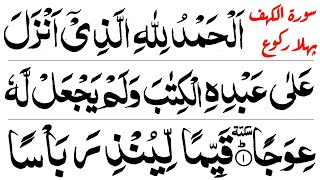 سورة الکہف
پہلا رکوع
اَلْحَمْدُ لِلّٰہِ الَّذِیْۤ اَنْزَلَ
عَلٰی عَبْدِہِ الْکِتٰبَ وَلَمْ یَجْعَلْ لَّہٗ
عِوَجًا ؕ سکتة ۱ قَیِّمًا لِّیُنْذِرَ بَاْسًا